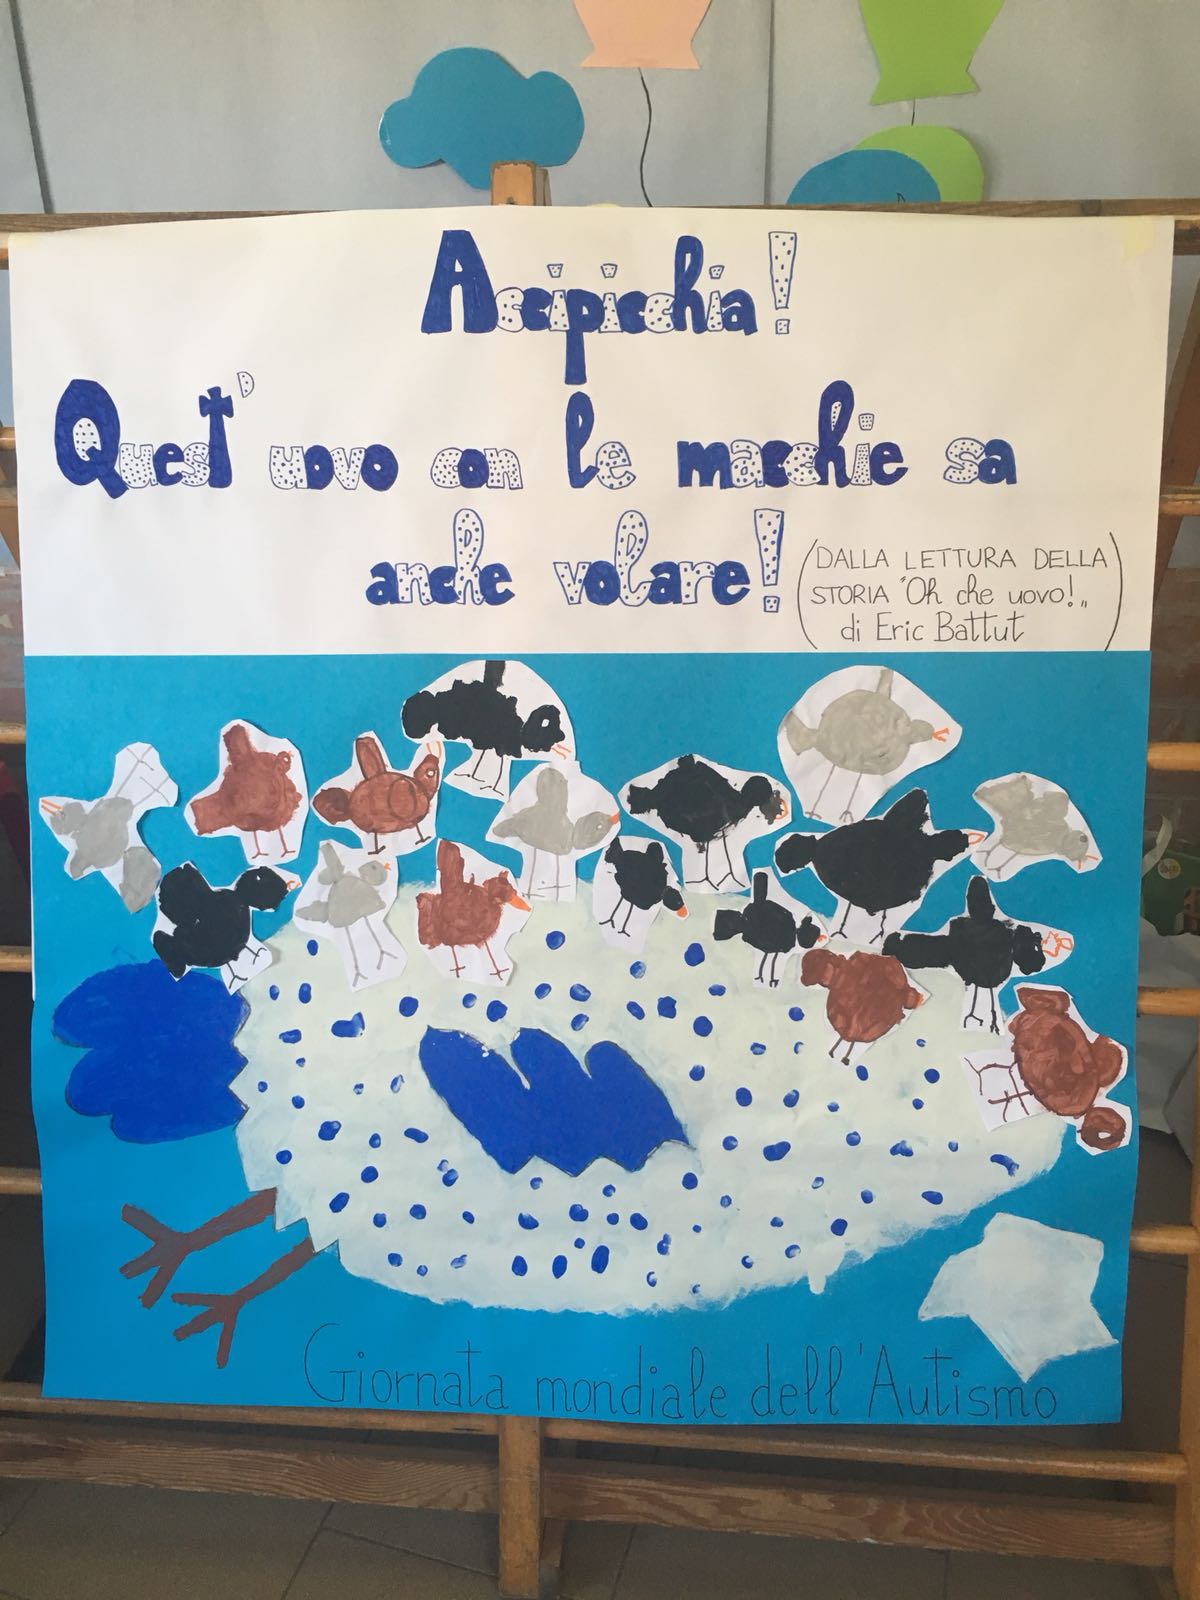 Accipicchia!
Quest' uovo con le macchie sa
anche volare!
(DALLA LETTURA DELLA
STORIA "Oh che uovo!„
di Eric Battut)
Giornata mondiale dell'Autismo